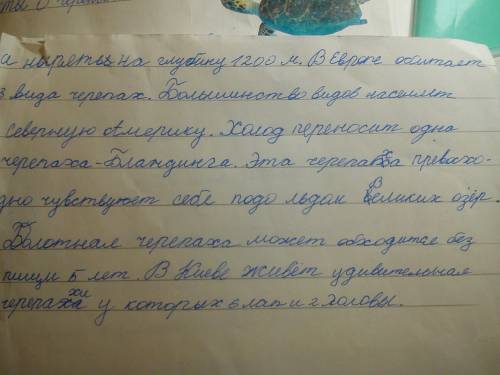 ты о череп
а нырять на глубину 1200 м. В Европе обитает
3 вида черепах. Большинство видов населяет
Северную Америку. Холод переносит одна
черепаха-Бландинга. Эта черепаха превахо-
дно чувствует себе подо льдом Великих озёр.
Болотная черепаха может обходится без
пищи 5 лет. В Киеве живёт удивительная
черепахи у которых 6 лап и 2 головы.